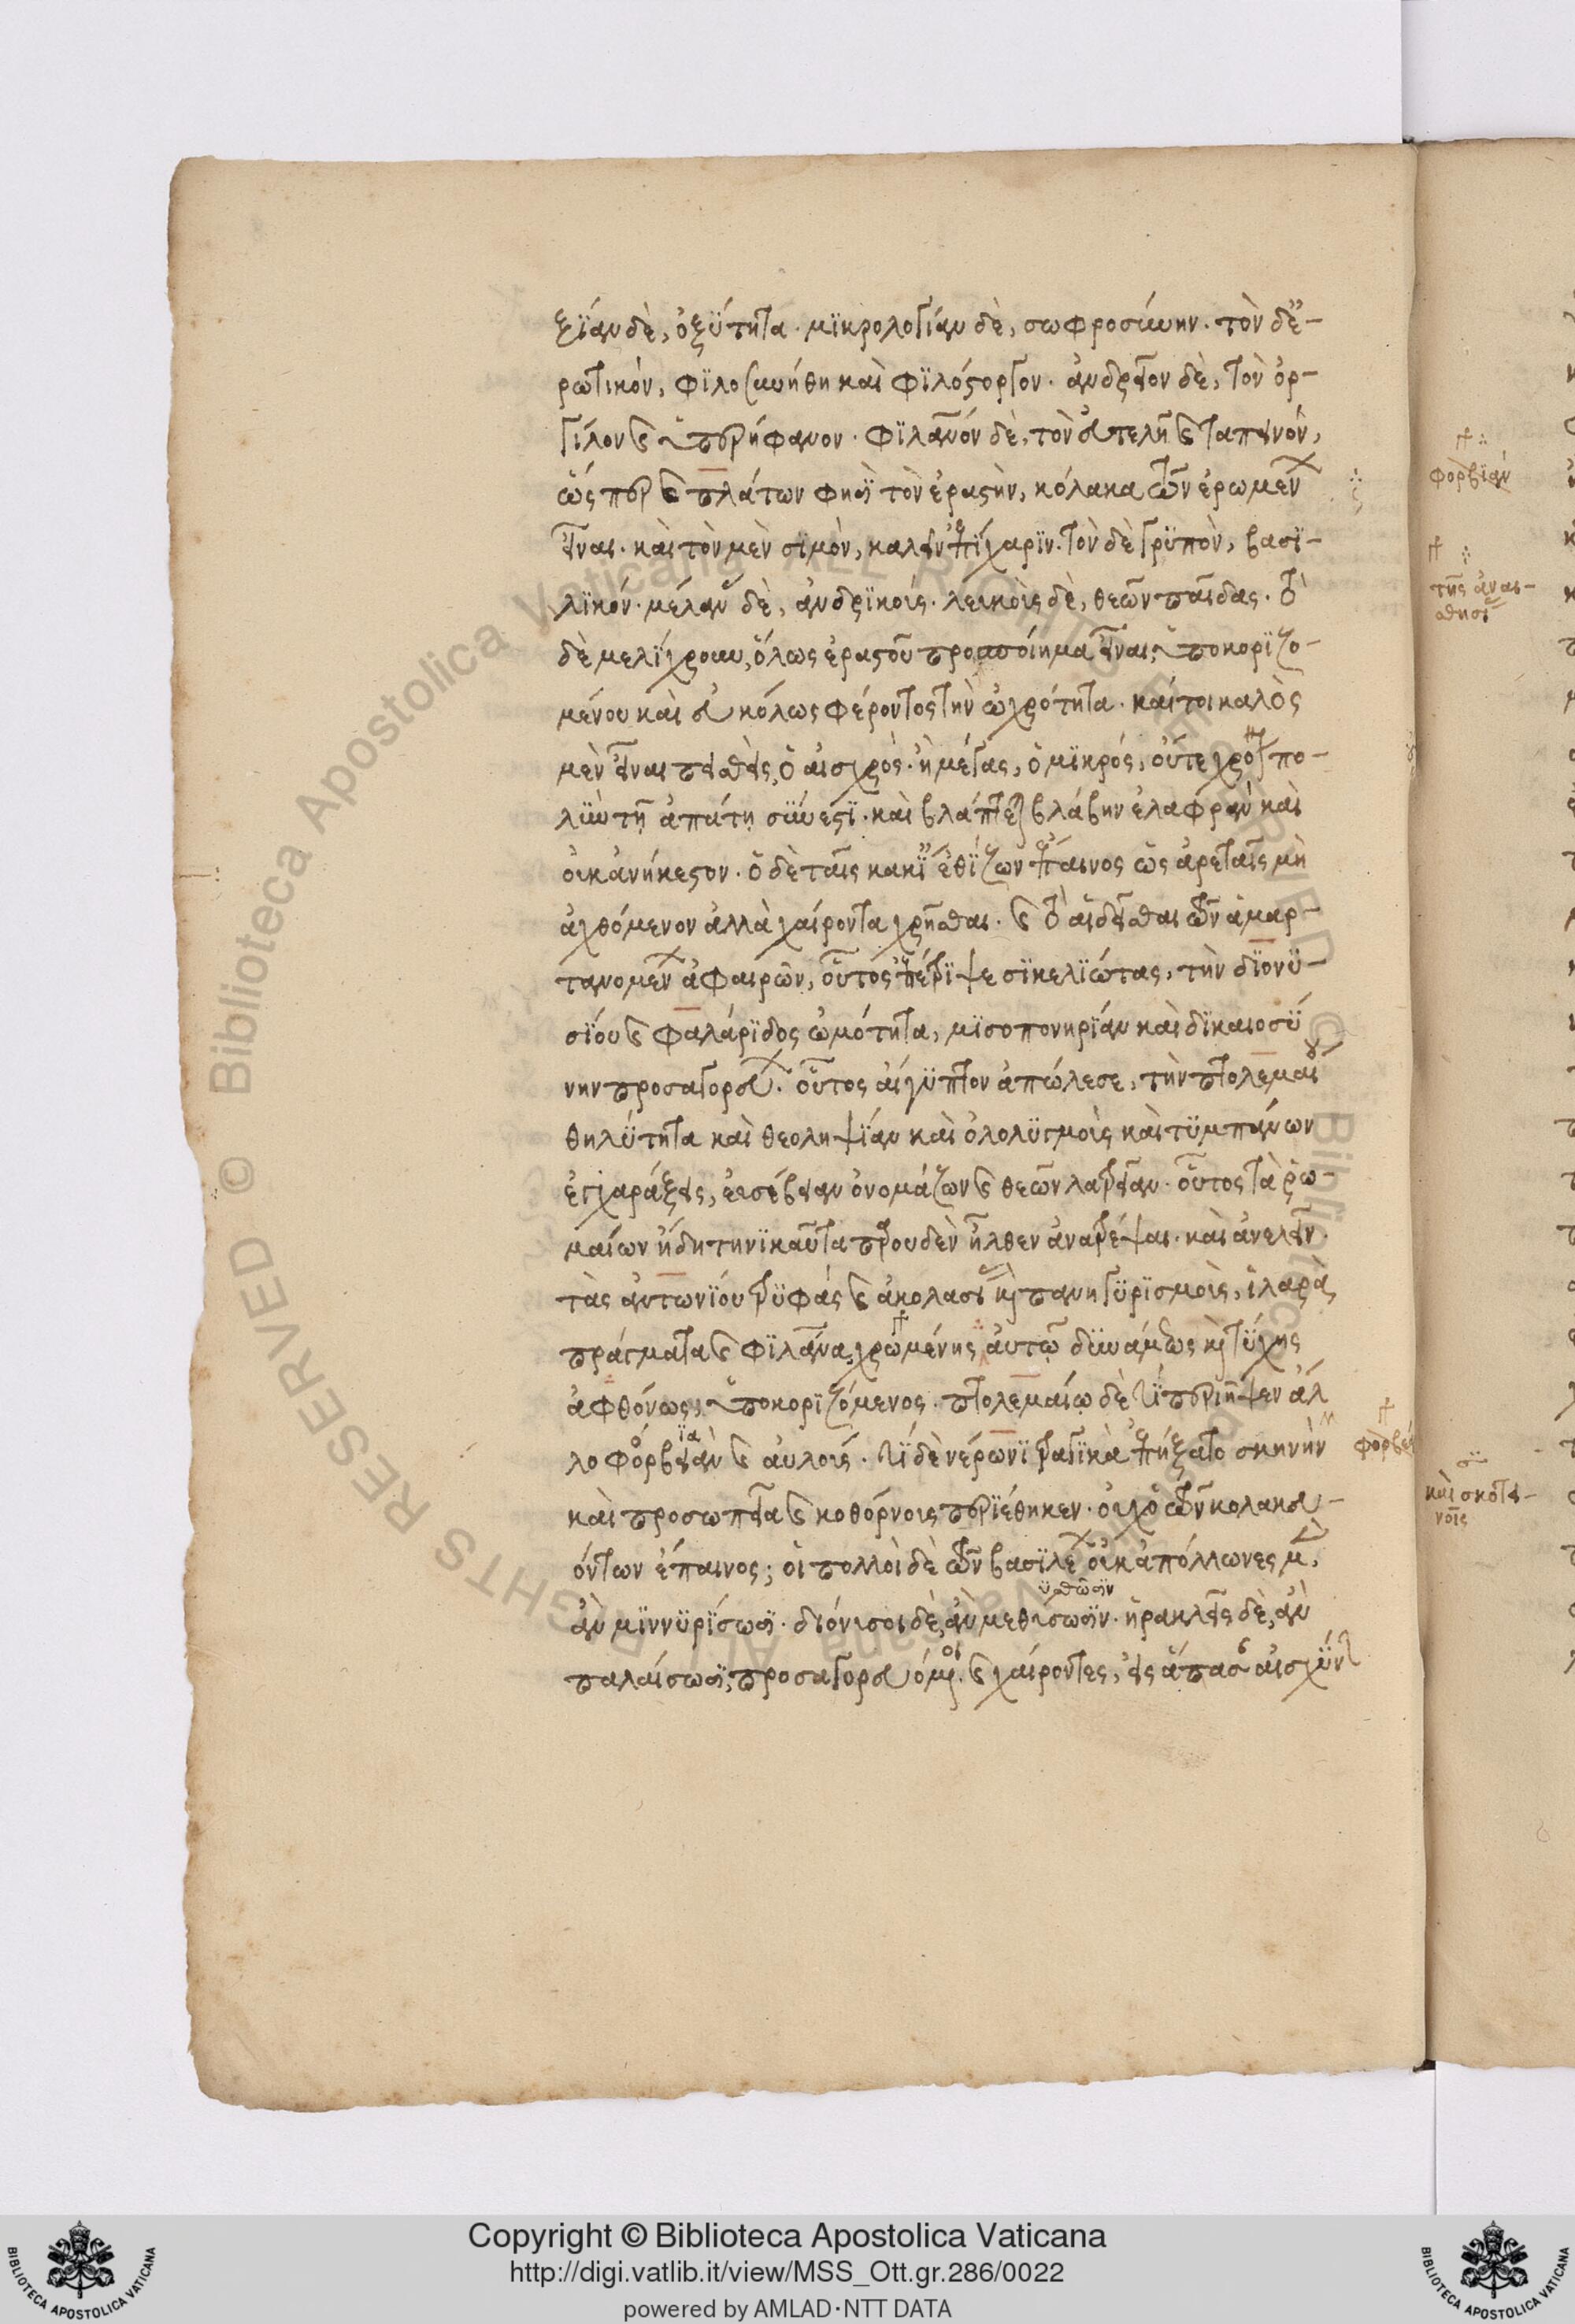 ξίαν δὲ, ὀξύτητα. μικρολογίαν δὲ, σωφροσύνην. τὸν δ' ἐ-
ρωτικὸν, φιλοσυνήθη καὶ φιλόστοργον. ἀνδρεῖον δὲ, τὸν ὀρ-
γίλον καὶ ὑπερήφανον. φιλάνθρωπον δὲ, τὸν εὐτελῆ καὶ ταπεινόν,
ὥς περ καὶ πλάτων φησὶ τὸν ἐραστὴν, κόλακα τῶν ἐρωμένων
εἶναι. καὶ τὸν μὲν σιμὸν, καλεῖν ἐπίχαριν. τὸν δὲ γρυπὸν, βασι-
λικόν. μέλανας δὲ, ἀνδρικούς. λευκοὺς δὲ, θεῶν παῖδας. τὸ
δὲ μελίχρουν, ὅλως ἐραστοῦ προσποίημα εἶναι, ὑποκοριζο-
μένου καὶ εὐκόλως φέροντος τὴν ὠχρότητα. καίτοι καλὸς
μὲν εἶναι πεισθεὶς, ὁ αἰσχρός. ἢ μέγας, ὁ μικρός, οὔτε χρόνον πο-
λὺν τῇ ἀπάτῃ σύνεστι. καὶ βλάπτεται βλάβην ἐλαφρὰν καὶ
οὐκ ἀνήκεστον. ὁ δὲ ταῖς κακίαις ἐθίζων ἔπαινος ὡς ἀρεταῖς μὴ
ἀχθόμενον ἀλλὰ χαίροντα χρῆσθαι. καὶ τὸ αἰδεῖσθαι τῶν ἁμαρ-
τανομένων ἀφαιρῶν, οὗτος ἐπέτριψε σικελιώτας, τὴν διονυ-
σίου καὶ φαλάριδος ὠμότητα, μισοπονηρίαν καὶ δικαιοσύ
νην προσαγορεύων. οὗτος αἴγυπτον ἀπώλεσε, τὴν πτολεμαίου
θηλύτητα καὶ θεοληψίαν καὶ ὀλολυγμοὺς καὶ τυμπάνων
ἐγχαράξεις, εὐσέβειαν ὀνομάζων καὶ θεῶν λατρείαν. οὗτος τὰ ῥω-
μαίων ἤδη τηνικαῦτα παρ' οὐδὲν ἦλθεν ἀνατρέψαι. καὶ ἀνελεῖν.
τὰς ἀντωνίου τρυφὰς καὶ ἀκολασίας καὶ πανηγυρισμοὺς, ἱλαρὰ
πράγματα καὶ φιλάνθρωπα, χρωμένης αὐτῷ δυνάμεως καὶ τύχης
ἀφθόνως, ὑποκοριζόμενος. πτολεμαίῳ δὲ τί περιῆψεν ἄλ
λο φορβειὰν καὶ αὐλούς. τί δὲ νέρωνι τραγικὰ ἐπήξατο σκηνὴν
καὶ προσωπεῖα καὶ κοθόρνους περιέθηκεν. οὐχ ὁ τῶν κολακευ-
όντων ἔπαινος; οἱ πολλοὶ δὲ τῶν βασιλέων οὐκ ἀπόλλωνες μὲν,
ἂν μιννυρίσωσι. διόνυσοι δὲ, ἂν μεθύσωσιν. ἡρακλεῖς δὲ, ἂν
παλαίσωσι, προσαγορευόμενοι. καὶ χαίροντες, εἰς ἅπασαν αἰσχύνην
φορβειὰν
τῆς ἀναι-
σθησί
καὶ σκοτει-
νοῖς
Copyright © Biblioteca Apostolica Vaticana
http://digi.vatlib.it/view/MSS_Ott.gr.286/0022
powered by AMLAD·NTT DATA